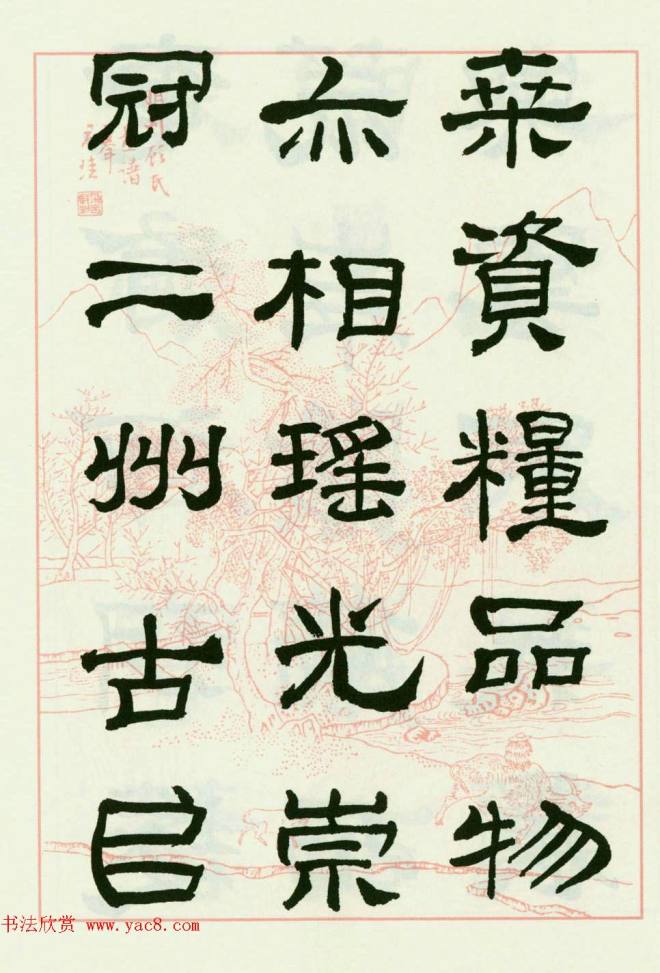 桒資糧品物
亦相瑶光崇
冠二州古曰
书法欣赏 www.yac8.com